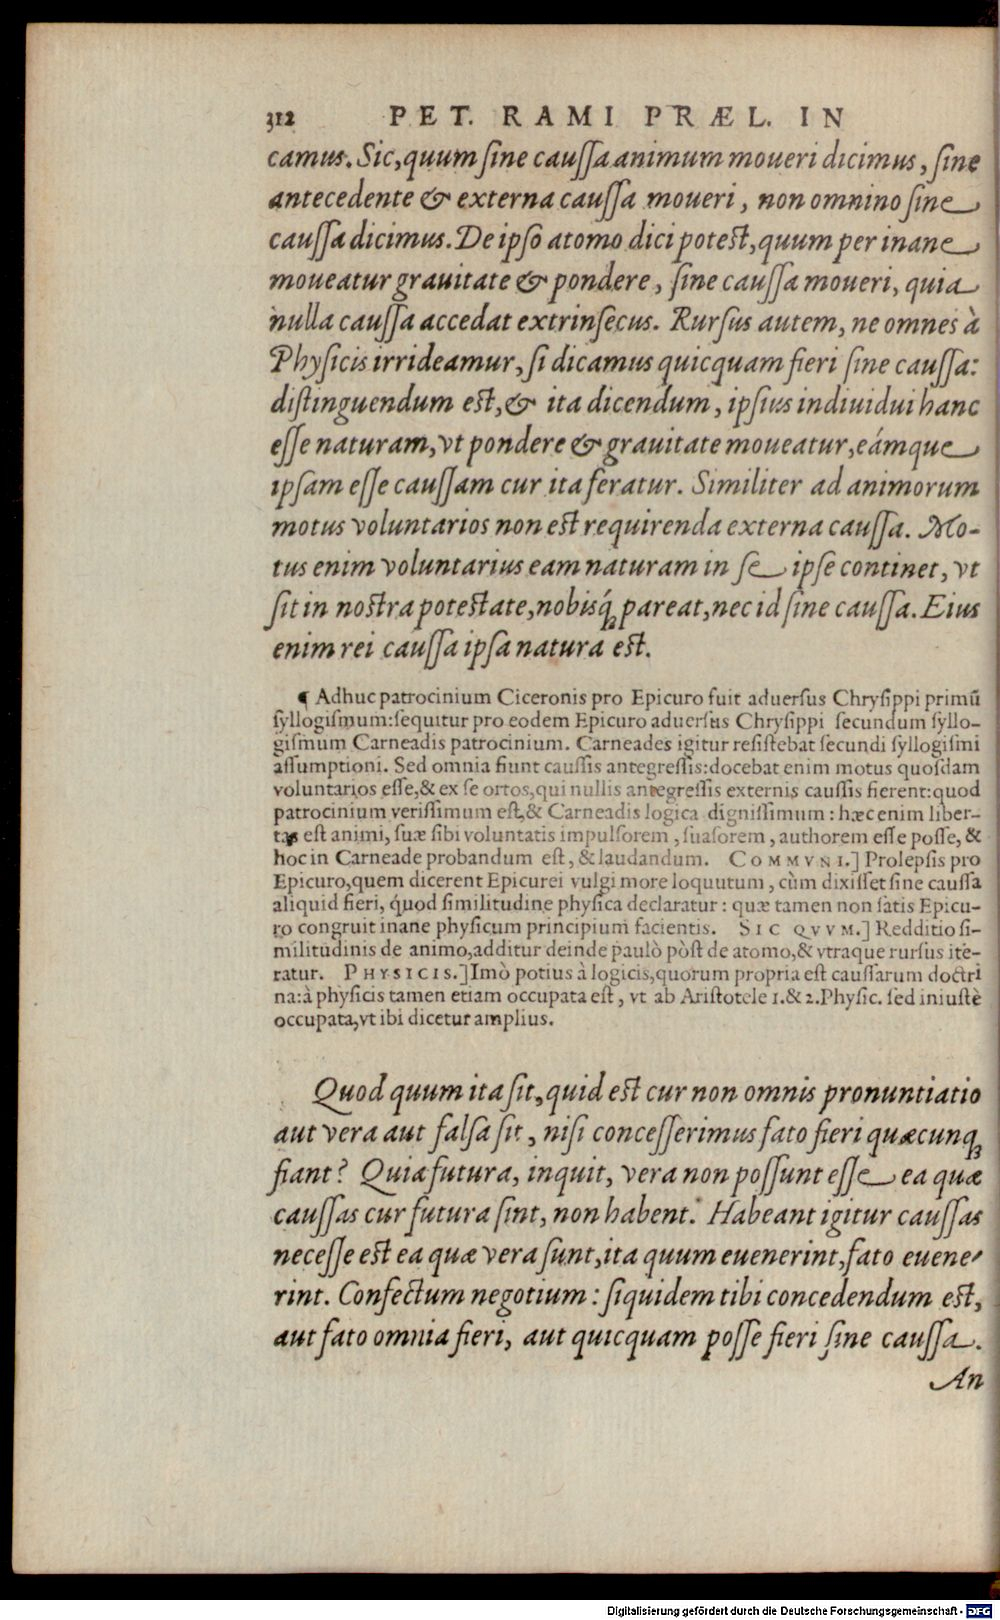 312 PET. RAMI PRÆL. IN
camus. Sic, quum ſine cauſſa animum moueri dicimus, ſine
antecedente & externa cauſſa moueri, non omnino ſine
cauſſa dicimus. De ipſo atomo dici potest, quum per inane
moueatur grauitate & pondere, ſine cauſſa moueri, quia
nulla cauſſa accedat extrinſecus. Rurſus autem, ne omnes à
Phyſicis irrideamur, ſi dicamus quicquam fieri ſine cauſſa:
diſtinguendum est, & ita dicendum, ipſius indiuidui hanc
eſſe naturam, vt pondere & grauitate moueatur, eámque
ipſam eſſe cauſſam cur ita feratur. Similiter ad animorum
motus voluntarios non est requirenda externa cauſſa. Mo-
tus enim voluntarius eam naturam in ſe ipſe continet, vt
ſit in nostra potestate, nobisq́; pareat, nec id ſine cauſſa. Eius
enim rei cauſſa ipſa natura est.
¶ Adhuc patrocinium Ciceronis pro Epicuro fuit aduerſus Chryſippi primũ
ſyllogiſmum: ſequitur pro eodem Epicuro aduerſus Chryſippi ſecundum ſyllo-
giſmum Carneadis patrocinium. Carneades igitur reſiſtebat ſecundi ſyllogiſmi
aſſumptioni. Sed omnia fiunt cauſſis antegreſſis: docebat enim motus quoſdam
voluntarios eſſe, & ex ſe ortos, qui nullis antegreſſis externis cauſſis fierent: quod
patrocinium veriſſimum eſt, & Carneadis logica digniſſimum: hæc enim liber-
tas est animi, ſuæ ſibi voluntatis impulſorem, ſuaſorem, authorem eſſe poſſe, &
hoc in Carneade probandum eſt, & laudandum. COMMVNI.] Prolepſis pro
Epicuro, quem dicerent Epicurei vulgi more loquutum, cùm dixiſſet ſine cauſſa
aliquid fieri, quod ſimilitudine phyſica declaratur: quæ tamen non ſatis Epicu-
ro congruit inane phyſicum principium facientis. SIC QVVM.] Redditio ſi-
militudinis de animo, additur deinde paulò pòſt de atomo, & vtraque rurſus ite-
ratur. PHYSICIS.] Imò potius à logicis, quorum propria est cauſſarum doctri
na: à phyſicis tamen etiam occupata eſt, vt ab Ariſtotele 1. & 2. Phyſic. ſed iniuſtè
occupata, vt ibi dicetur amplius.
Quod quum ita ſit, quid est cur non omnis pronuntiatio
aut vera aut falſa ſit, niſi conceſſerimus fato fieri quæcunq;
fiant? Quia futura, inquit, vera non poſſunt eſſe ea quæ
cauſſas cur futura ſint, non habent. Habeant igitur cauſſas
neceſſe est ea quæ vera ſunt, ita quum euenerint, fato euene-
rint. Confectum negotium: ſiquidem tibi concedendum est,
aut fato omnia fieri, aut quicquam poſſe fieri ſine cauſſa.
An
Digitalisierung gefördert durch die Deutsche Forschungsgemeinschaft - DFG